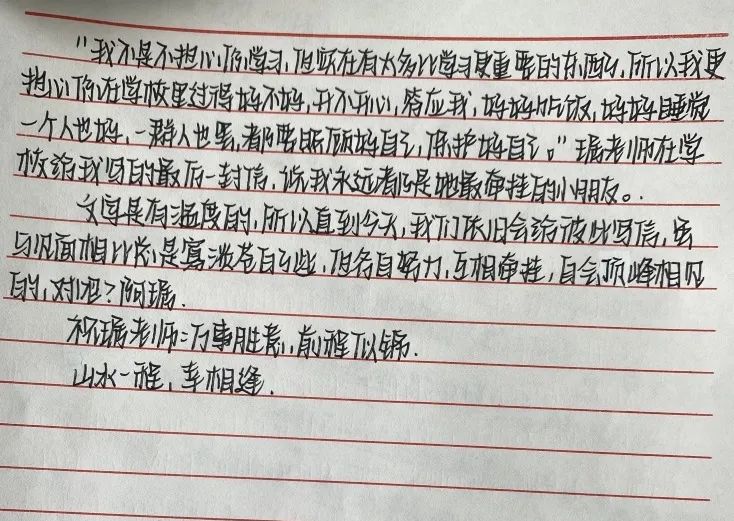 “我不是不担心你学习,但实在有太多比学习更重要的东西了,所以我更
担心你在学校里过得好不好,开不开心,答应我,好好吃饭,好好睡觉
一个人也好,一群人也罢,都要照顾好自己,保护好自己。”琚老师在学
校给我写的最后一封信,说我永远都是她最牵挂的小朋友。
文字是有温度的,所以直到今天,我们依旧会给彼此写信,虽
与见面相比总是寡淡苍白了些,但各自努力,互相牵挂,自会顶峰相见
的,对吧?阿琚.
祝琚老师:万事胜意,前程似锦.
山水一程,幸相逢.